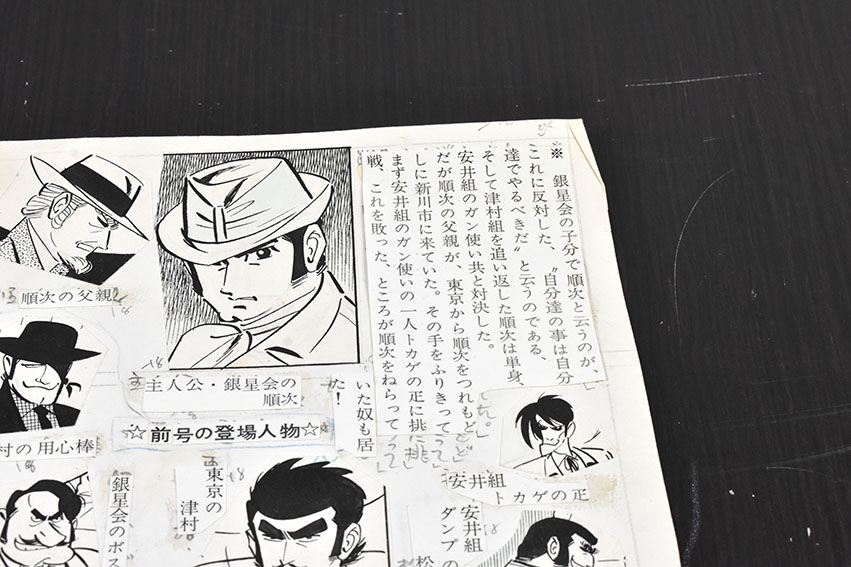 ※　銀星会の子分で順次と云うのが、
これに反対した、〝自分達の事は自分
達でやるべきだ〟と云うのである、
そして津村組を追い返した順次は単身、
安井組のガン使い共と対決した。
だが順次の父親が、東京から順次をつれもど
しに新川市に来ていた。その手をふりきって
まず安井組のガン使いの一人トカゲの正に挑
戦、これを敗った、ところが順次をねらって
いた奴も居
た！
主人公・銀星会の
順次
順次の父親
村の用心棒
☆前号の登場人物☆
安井組
トカゲの正
東京の
津村
銀星会のボス
安井組
ダンプの
松